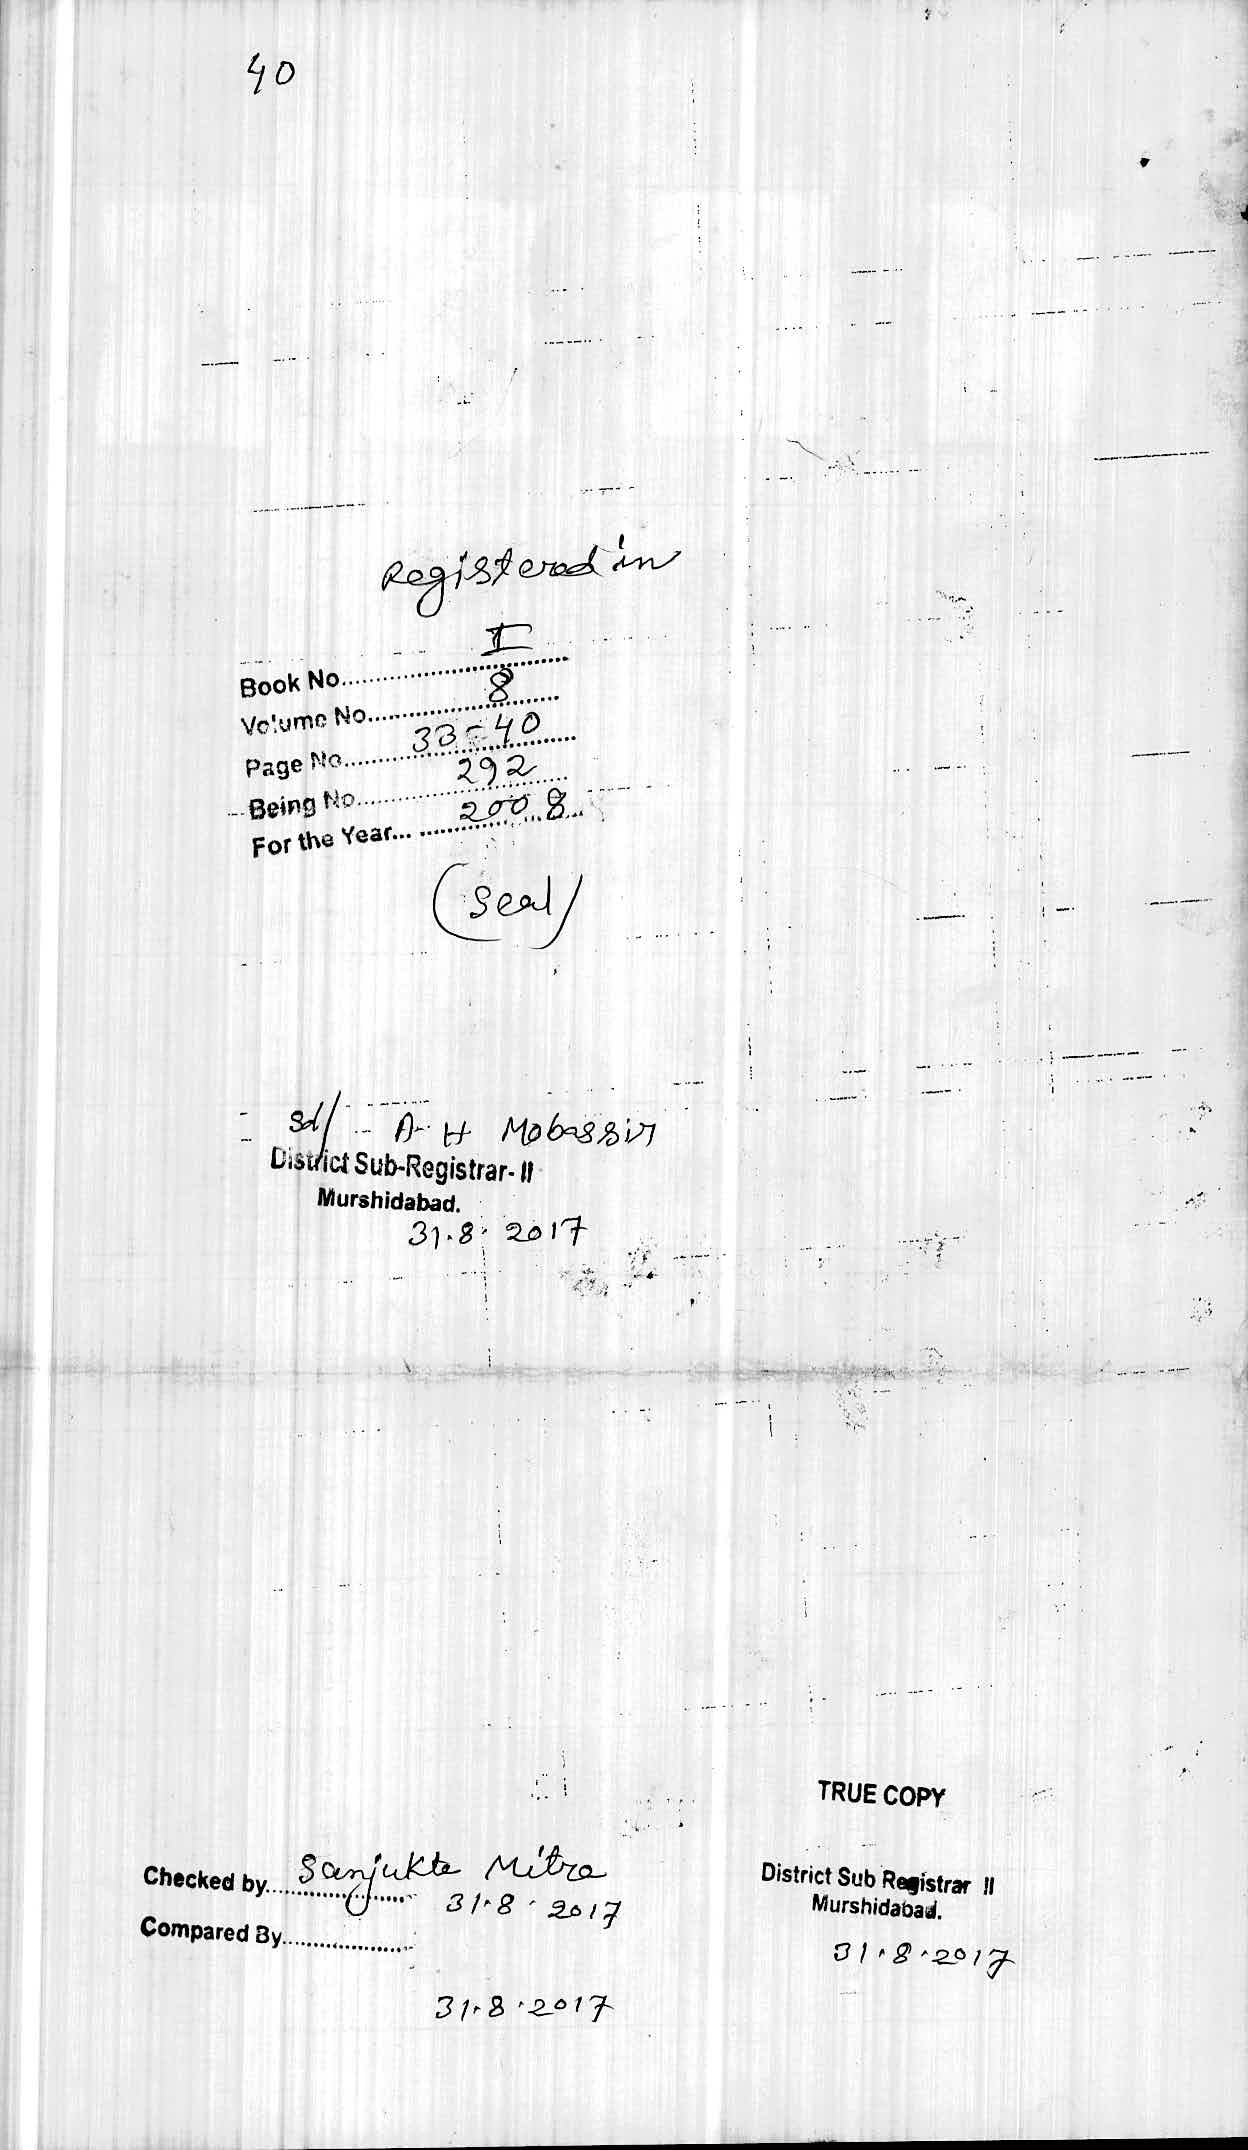 40
Registered in
Book No. I
Volume No. 8
Page No. 33-40
Being No. 292
For the Year... 2008
(Seal)
Sd/- A- H Mobassir
District Sub-Registrar- II
Murshidabad.
31.8.2017
TRUE COPY
Checked by Sanjukta Mitra
31.8.2017
Compared By
31.8.2017
District Sub Registrar II
Murshidabad.
31.8.2017